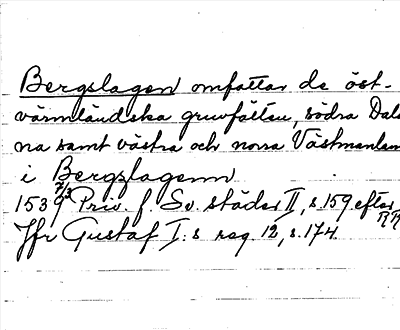 Bergslagen omfattar de öst-
värmländska gruvfälten, södra Dala
na samt västra och norra Västmanlan
i Bergzlagenn
1539 7/3 Priv. f. Sv. städer II, s. 159 efter RR
Jfr Gustaf I:s reg. 12, s. 174